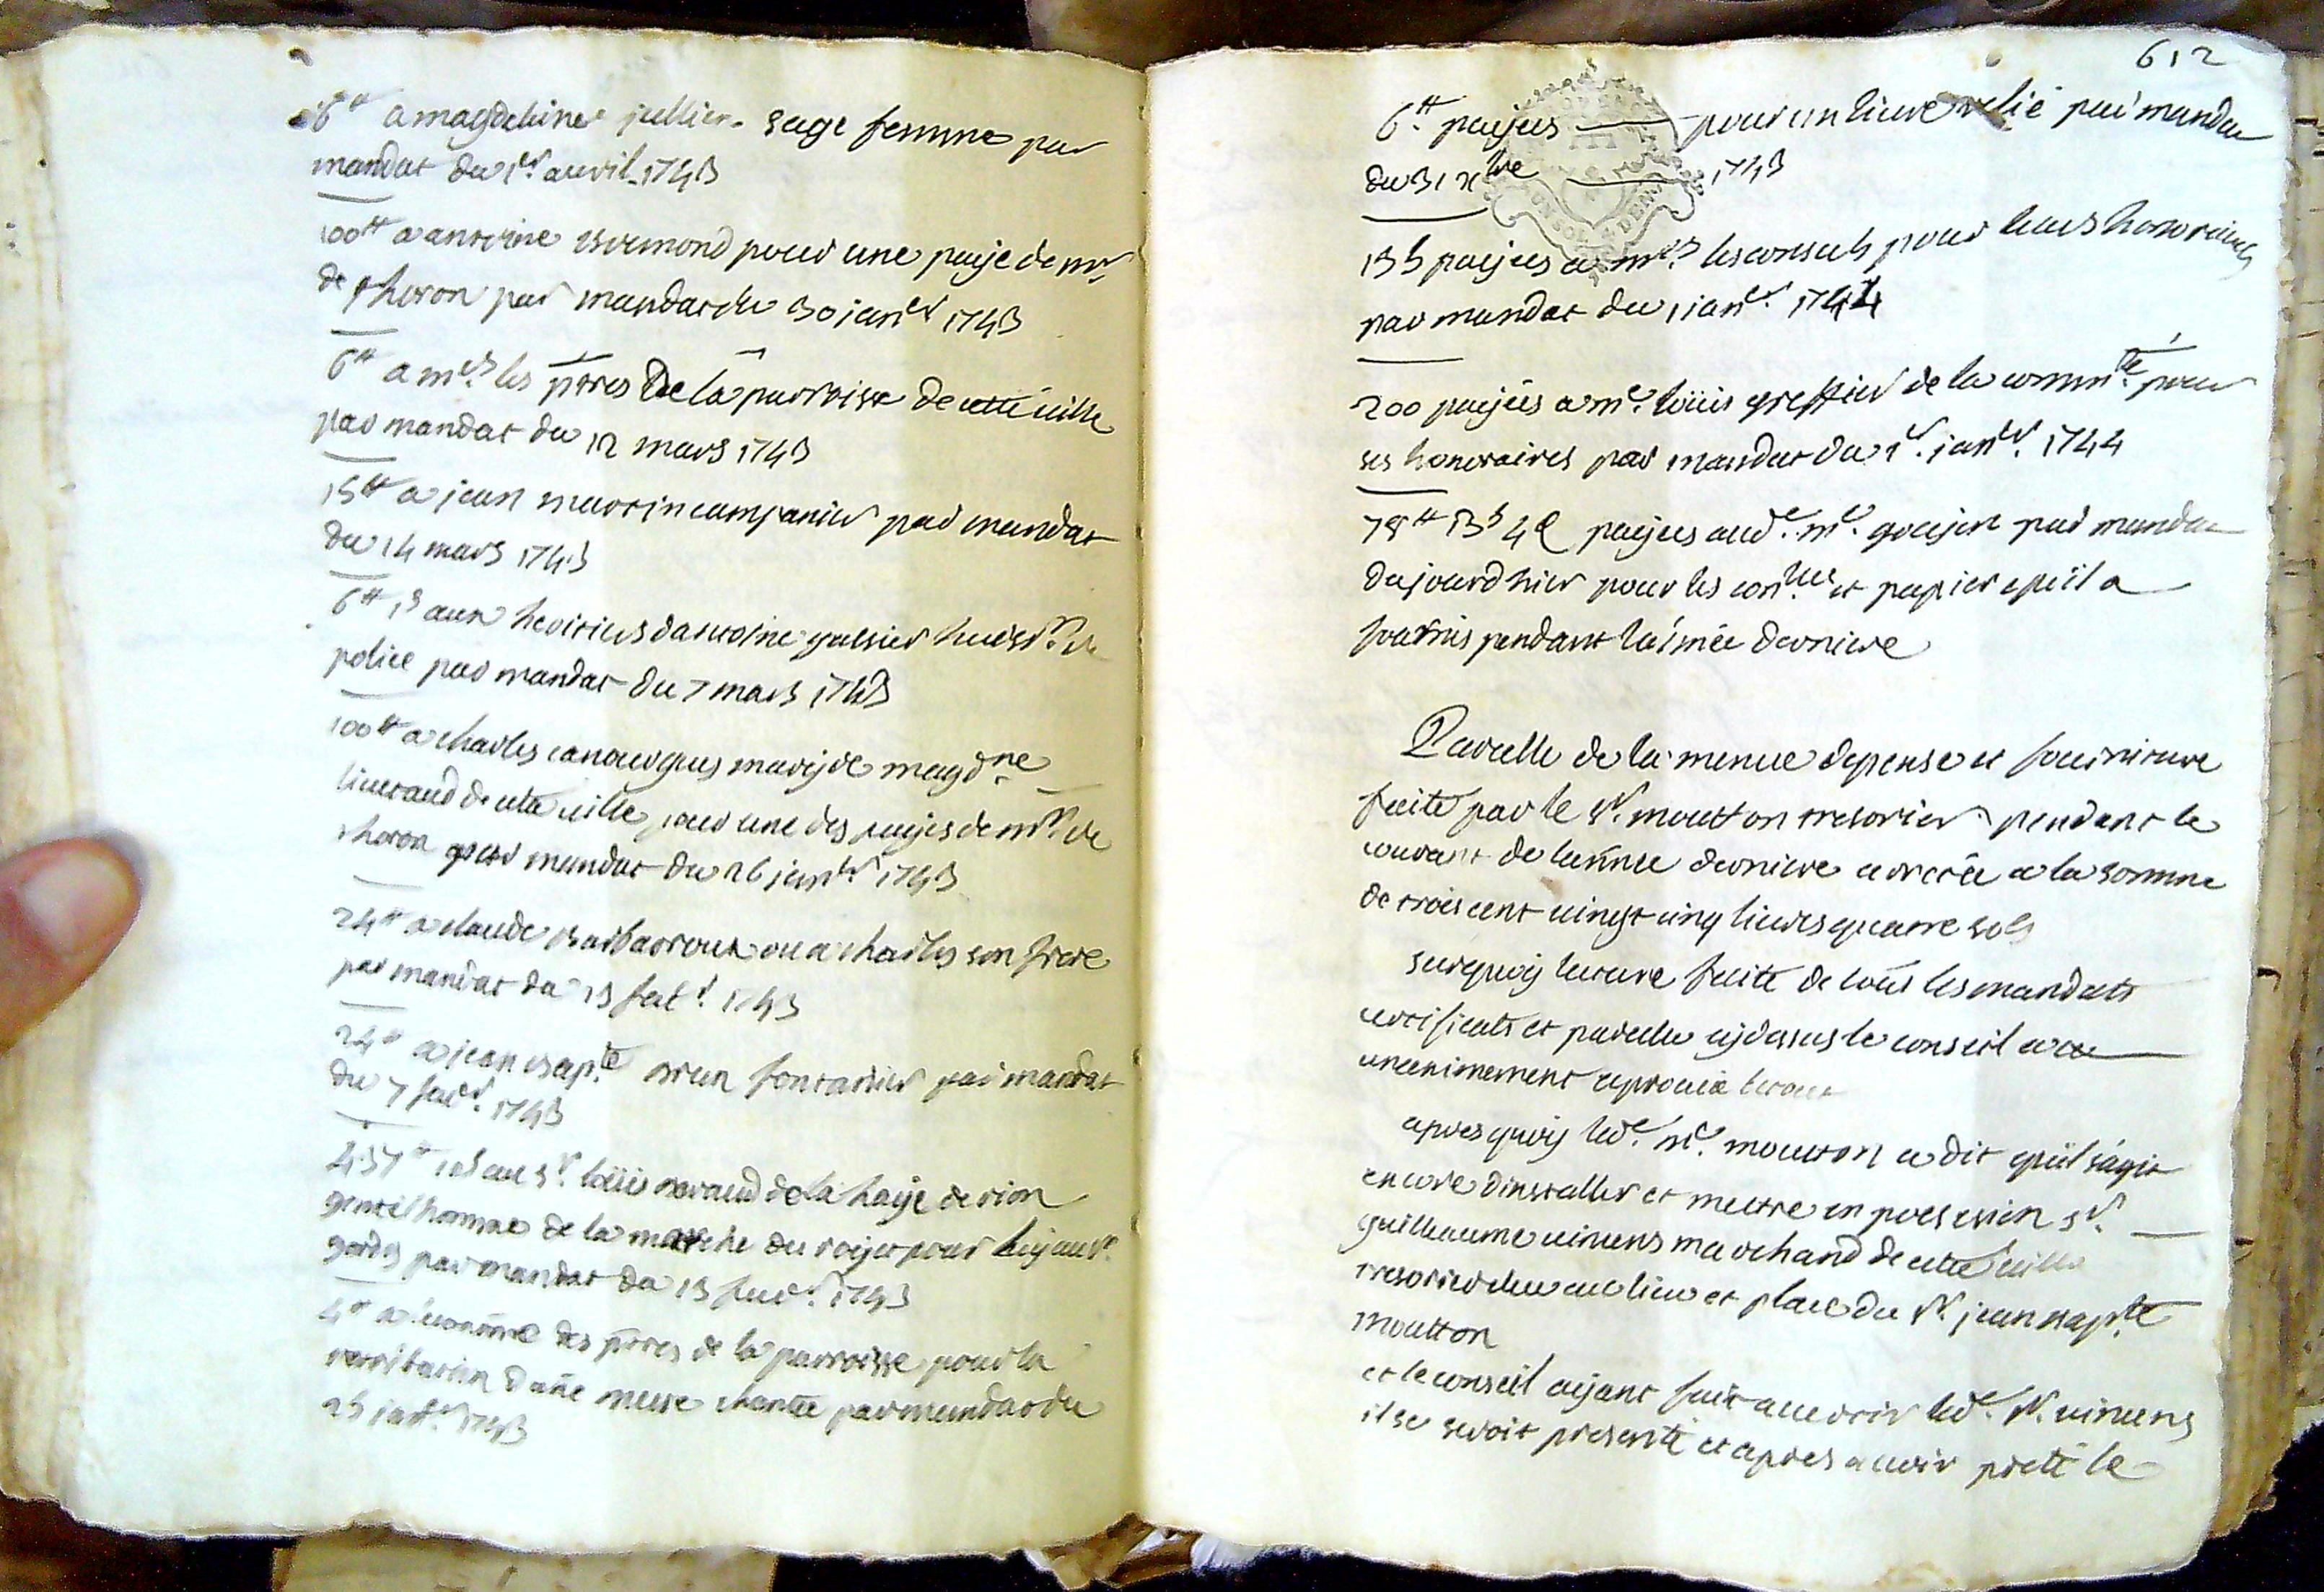 6tt a magdeleine jullien sage femme par
mandat du 1er. avril 1743
100tt a antoine esvemond pour une paije de mr
de thoron par mandat du 30 janer 1743
6tt a mes. les ptres de la parroisse de cette ville
par mandat du 12 mars 1743
15tt a jean martin campanier par mandat
du 14 mars 1743
6tt 1s aux heoitiers dantoine galsier huiss.r de
police par mandat du 7 mars 1743
100tt a charles canaurgues marij de magd.ne
lieutaud de cette ville pour une des paijes de mr. de
thoron par mandat du 26 janer. 1743
24tt a claude barbaroux ou a charles son frere
par mandat du 13 feb.r 1743
24tt a jean bap.te brun fontanier par mandat
du 7 fevr. 1743
437tt 10s au sr. loüis de la haije de rion
gentilhomme de la manche du roij et pour luij aux
gardes par mandat du 13 fevr. 1743
4tt a leconome des ptres de la parroisse pour la
retribution dune messe chantée par mandat du
25 janr. 1743
612
6tt paijées pour un livre relié par mandat
du 31 xbre 1743
135 paijées a mes. les consuls pour leurs honoraires
par mandat du 1 janer. 1744
200 paijées a me. loüis greffier de la commté. pour
ses honoraires par mandat du 1er. janer. 1744
78tt 13s 4d paijées aud.e me. goujon par mandat
dujourdhier pour les con.lles et papier quil a
fournis pendant lannée derniere
Parcelle de la menue depense et fourniture
faite par le sr. moutton tresorier pendant le
courant de lannée derniere arretée a la somme
de trois cent vingt cinq livres quatre sols
surquoij lecture faite de tous les mandats
certificats et parcelle cij dessus le conseil a
unenimement aprouvé le tout
apres quoij led.e sr. moutton a dit quil sagit
encore dinstaller et mettre en possession sr.
guilheaume vincens marchand de cette ville
tresorier elu au lieu et place du sr. jean bap.te
moutton
et le conseil aijant fait avertir led.e sr. vincens
il se seroit presenté et apres avoir preté le